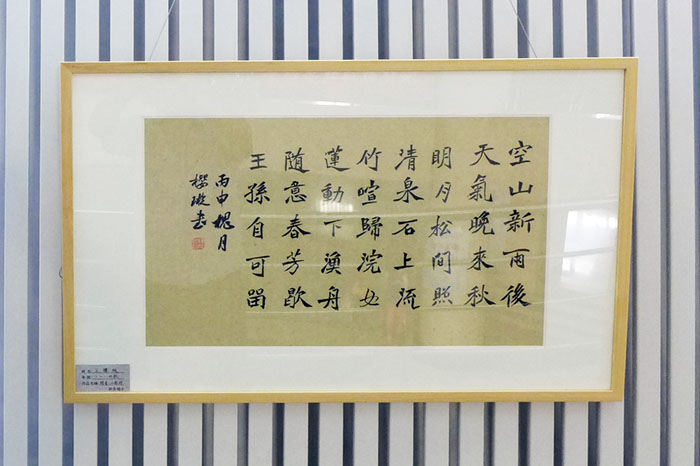 空山新雨後
天氣晚來秋
明月松間照
清泉石上流
竹喧歸浣女
蓮動下漁舟
随意春芳歇
王孫自可留
丙申槐月